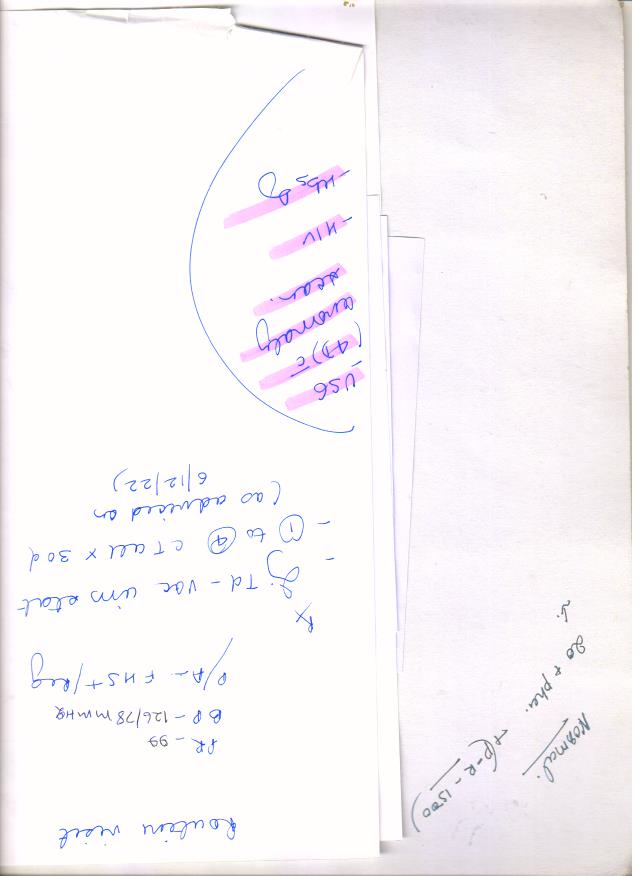 Routein visit
PR - 99
BP - 126/78 mmHg
P/A - FHS+/Reg
Rx
- Inj Td - vac i/m stat
- ① to ④ CT all x 30d
(as advised on
6/12/22)
- USG
(4D) c̄
anomaly
scan.
- HIV
- HBsAg
Normal.
20 +
+ (P-R-1500)